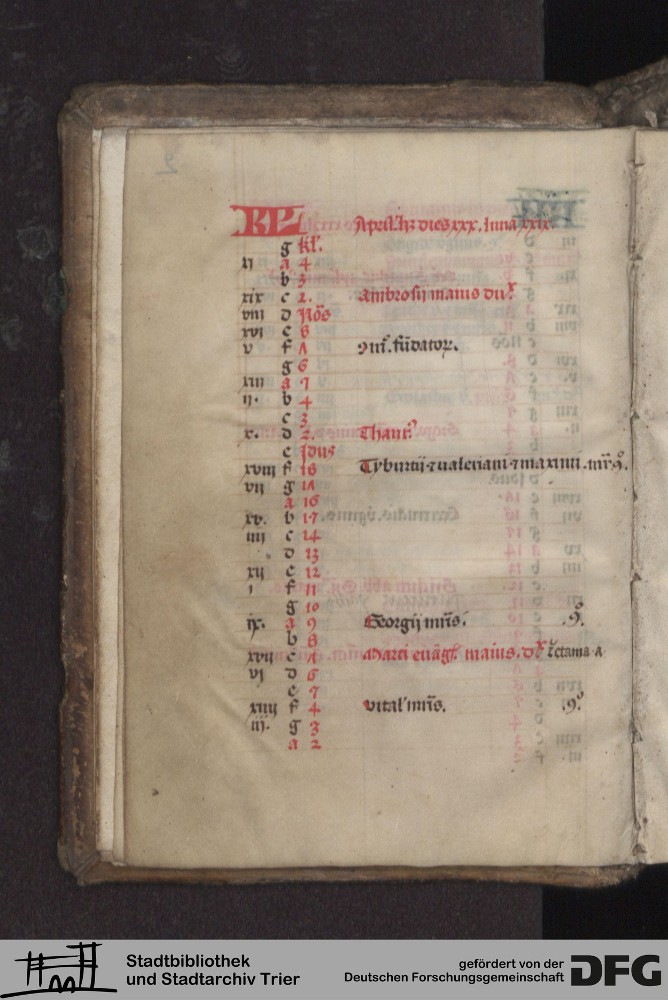 KL Aprił. hꝫ dies xxx. luna xxix.
g kł.
xj a 4
b 3
xix c 2. Ambrosij maius du͛x
viij d Nōs
xvj e 8
v f Λ ꝯm̄. fūdatoꝝ.
g 6
xiij a 7
ij. b 4
c 3
x. d 2.
e Jdus
xviij f 18 Tyburtij ⁊ ualeriani ⁊ maximi. mr̄ꝝ.
vij g 1Λ
a 16
xv. b 17
iiij c 14
d 13
xij e 12
i f 11
g 10
ix. a 9 Georgij mr̄is. 9.
b 8
xvij c Λ Marci euāgł. maius. d͛x letania a
vj d 6
e 7
xiiij f 4 vitaľ mr̄is. 9.
iij. g 3
a 2
Stadtbibliothek
und Stadtarchiv Trier
gefördert von der
Deutschen Forschungsgemeinschaft
DFG